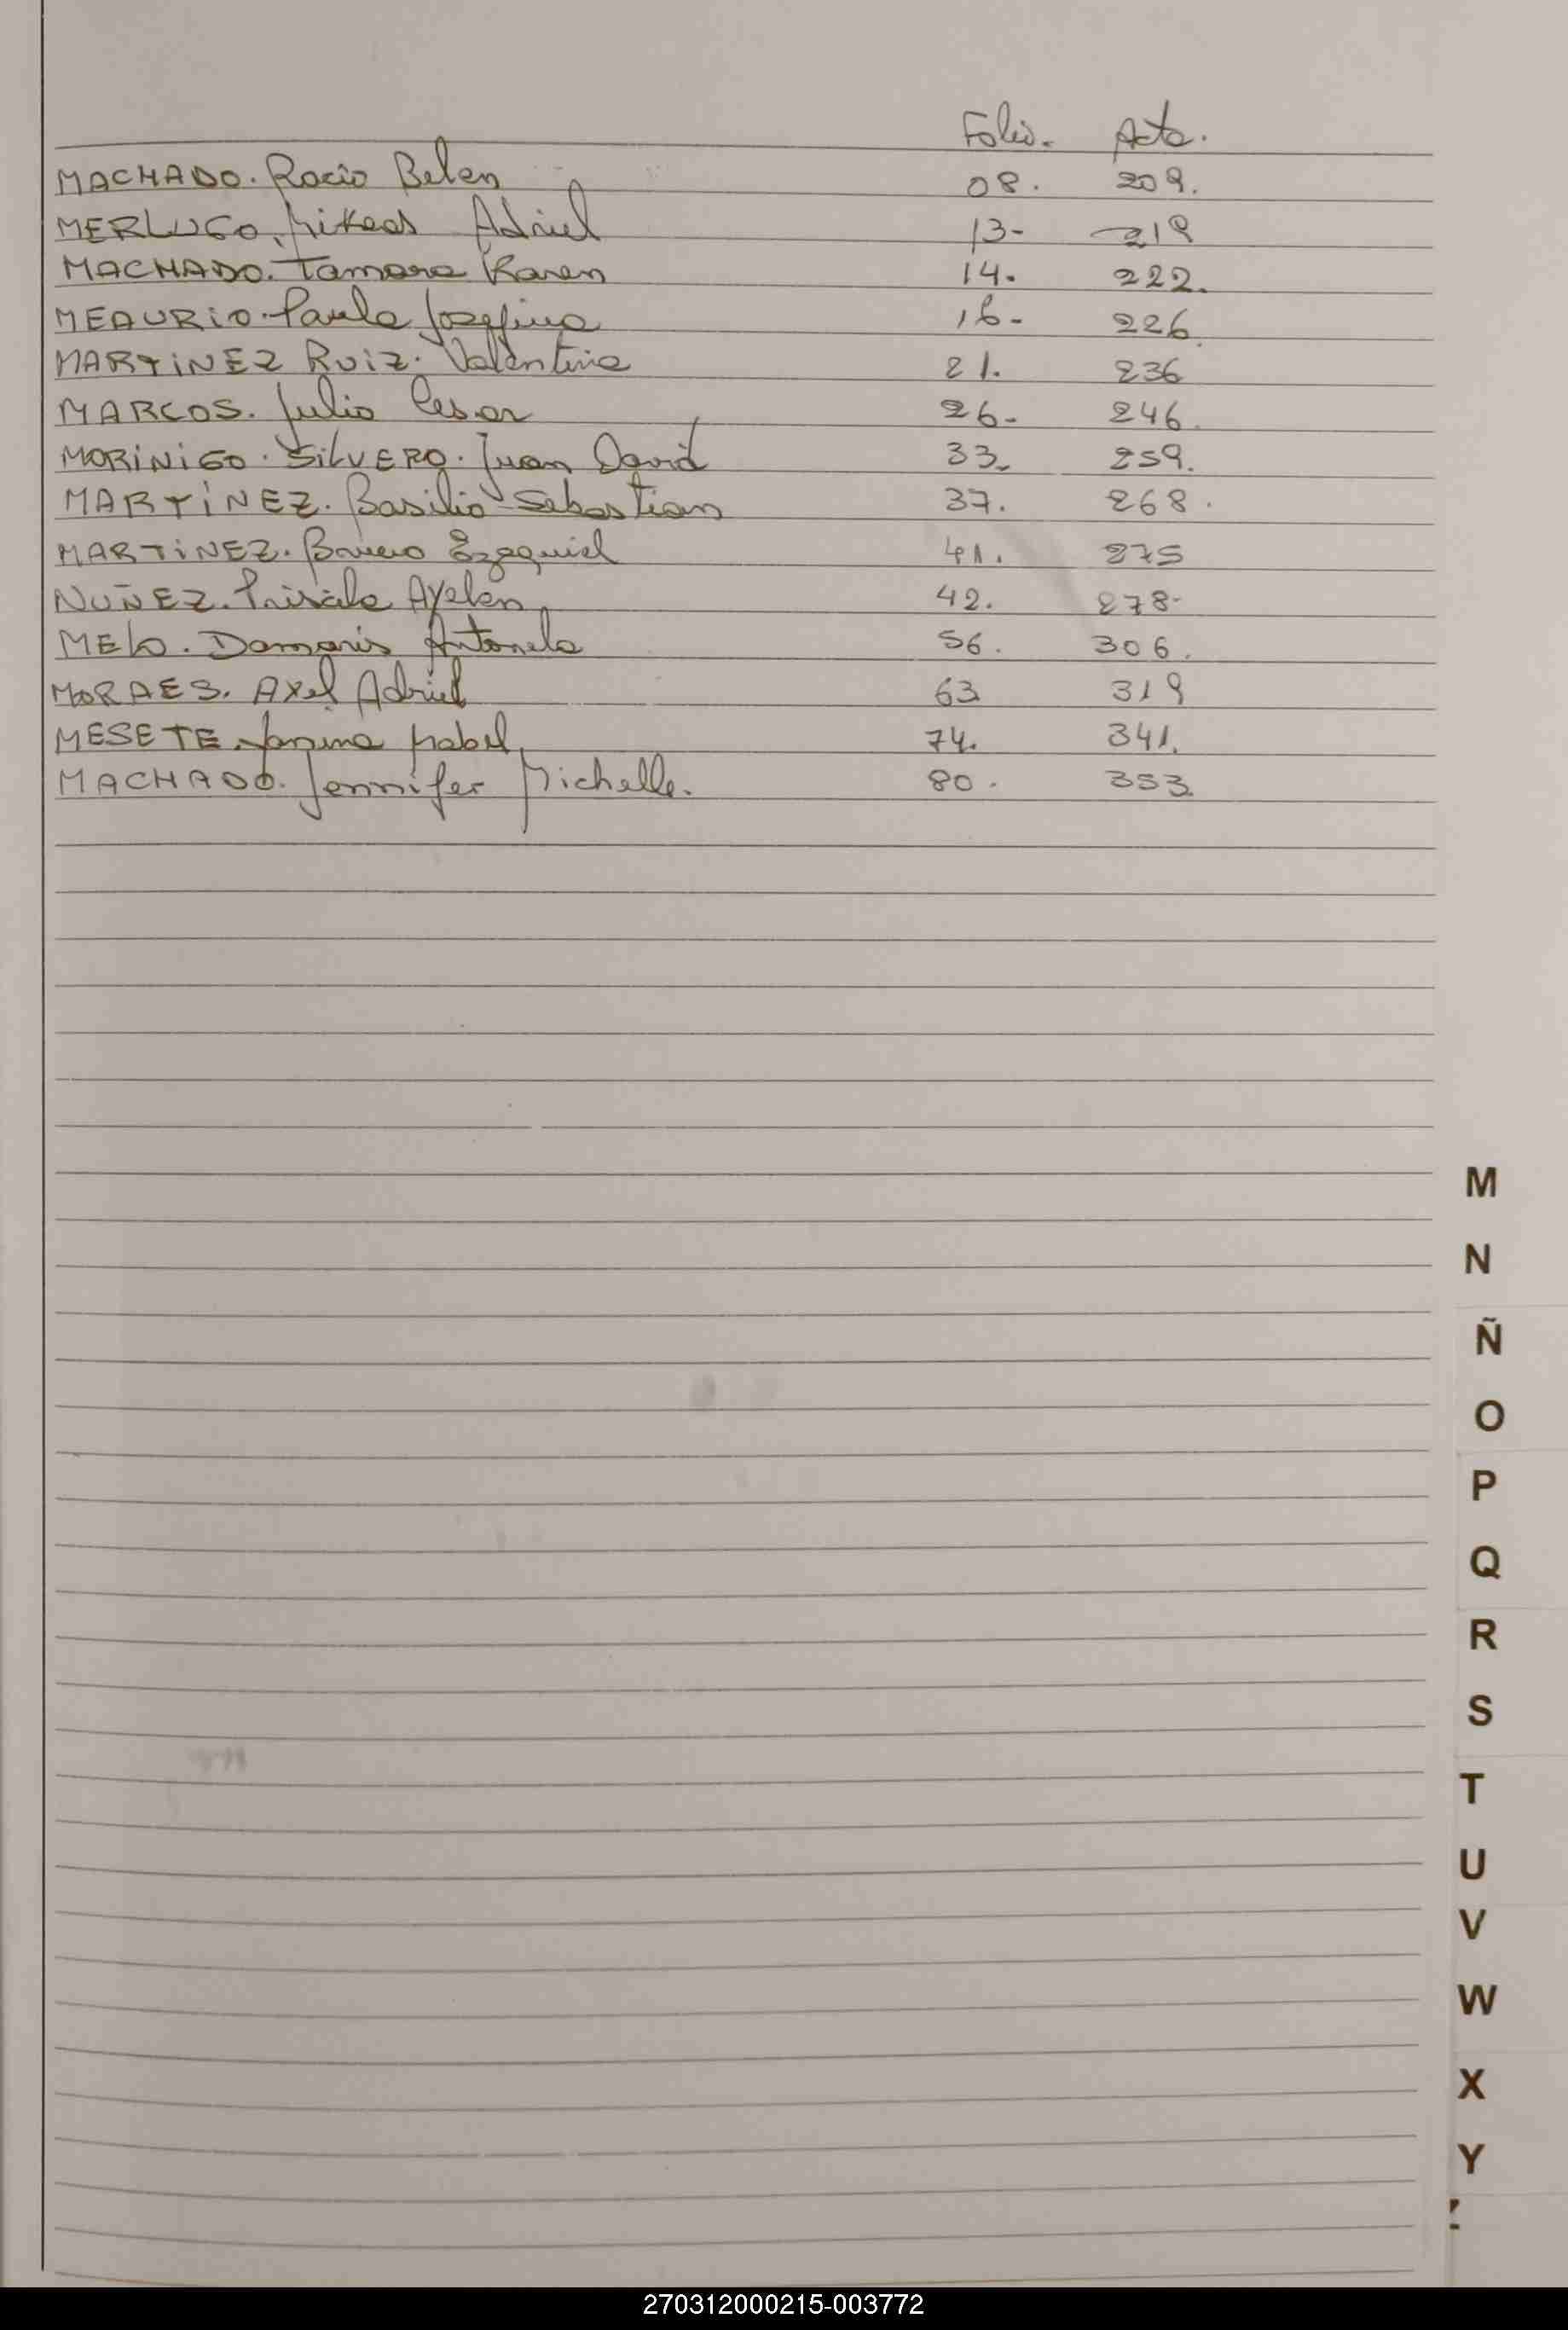 Folio. Acta.
MACHADO. Rocio Belen 08. 209.
MERLUGO. Mikeas Adriel 13- 219
MACHADO. Tamara Karen 14. 222.
MEAURIO. Paula Josefina 16- 226.
MARTINEZ RUIZ. Valentina 21. 236
MARCOS. Julio Cesar 26- 246.
MORINIGO. SILVERO. Juan David 33. 259.
MARTINEZ. Basilio Sebastian 37. 268.
MARTINEZ. Ezequiel 41. 275
NUÑEZ. Prisila Ayelen 42. 278-
MELO. Damaris Antonela 56. 306.
MORAES. Axel Adriel 63 319
MESETE. Isabel 74. 341.
MACHADO. Jennifer Michelle. 80. 353.
M
N
Ñ
O
P
Q
R
S
T
U
V
W
X
Y
Z
270312000215-003772